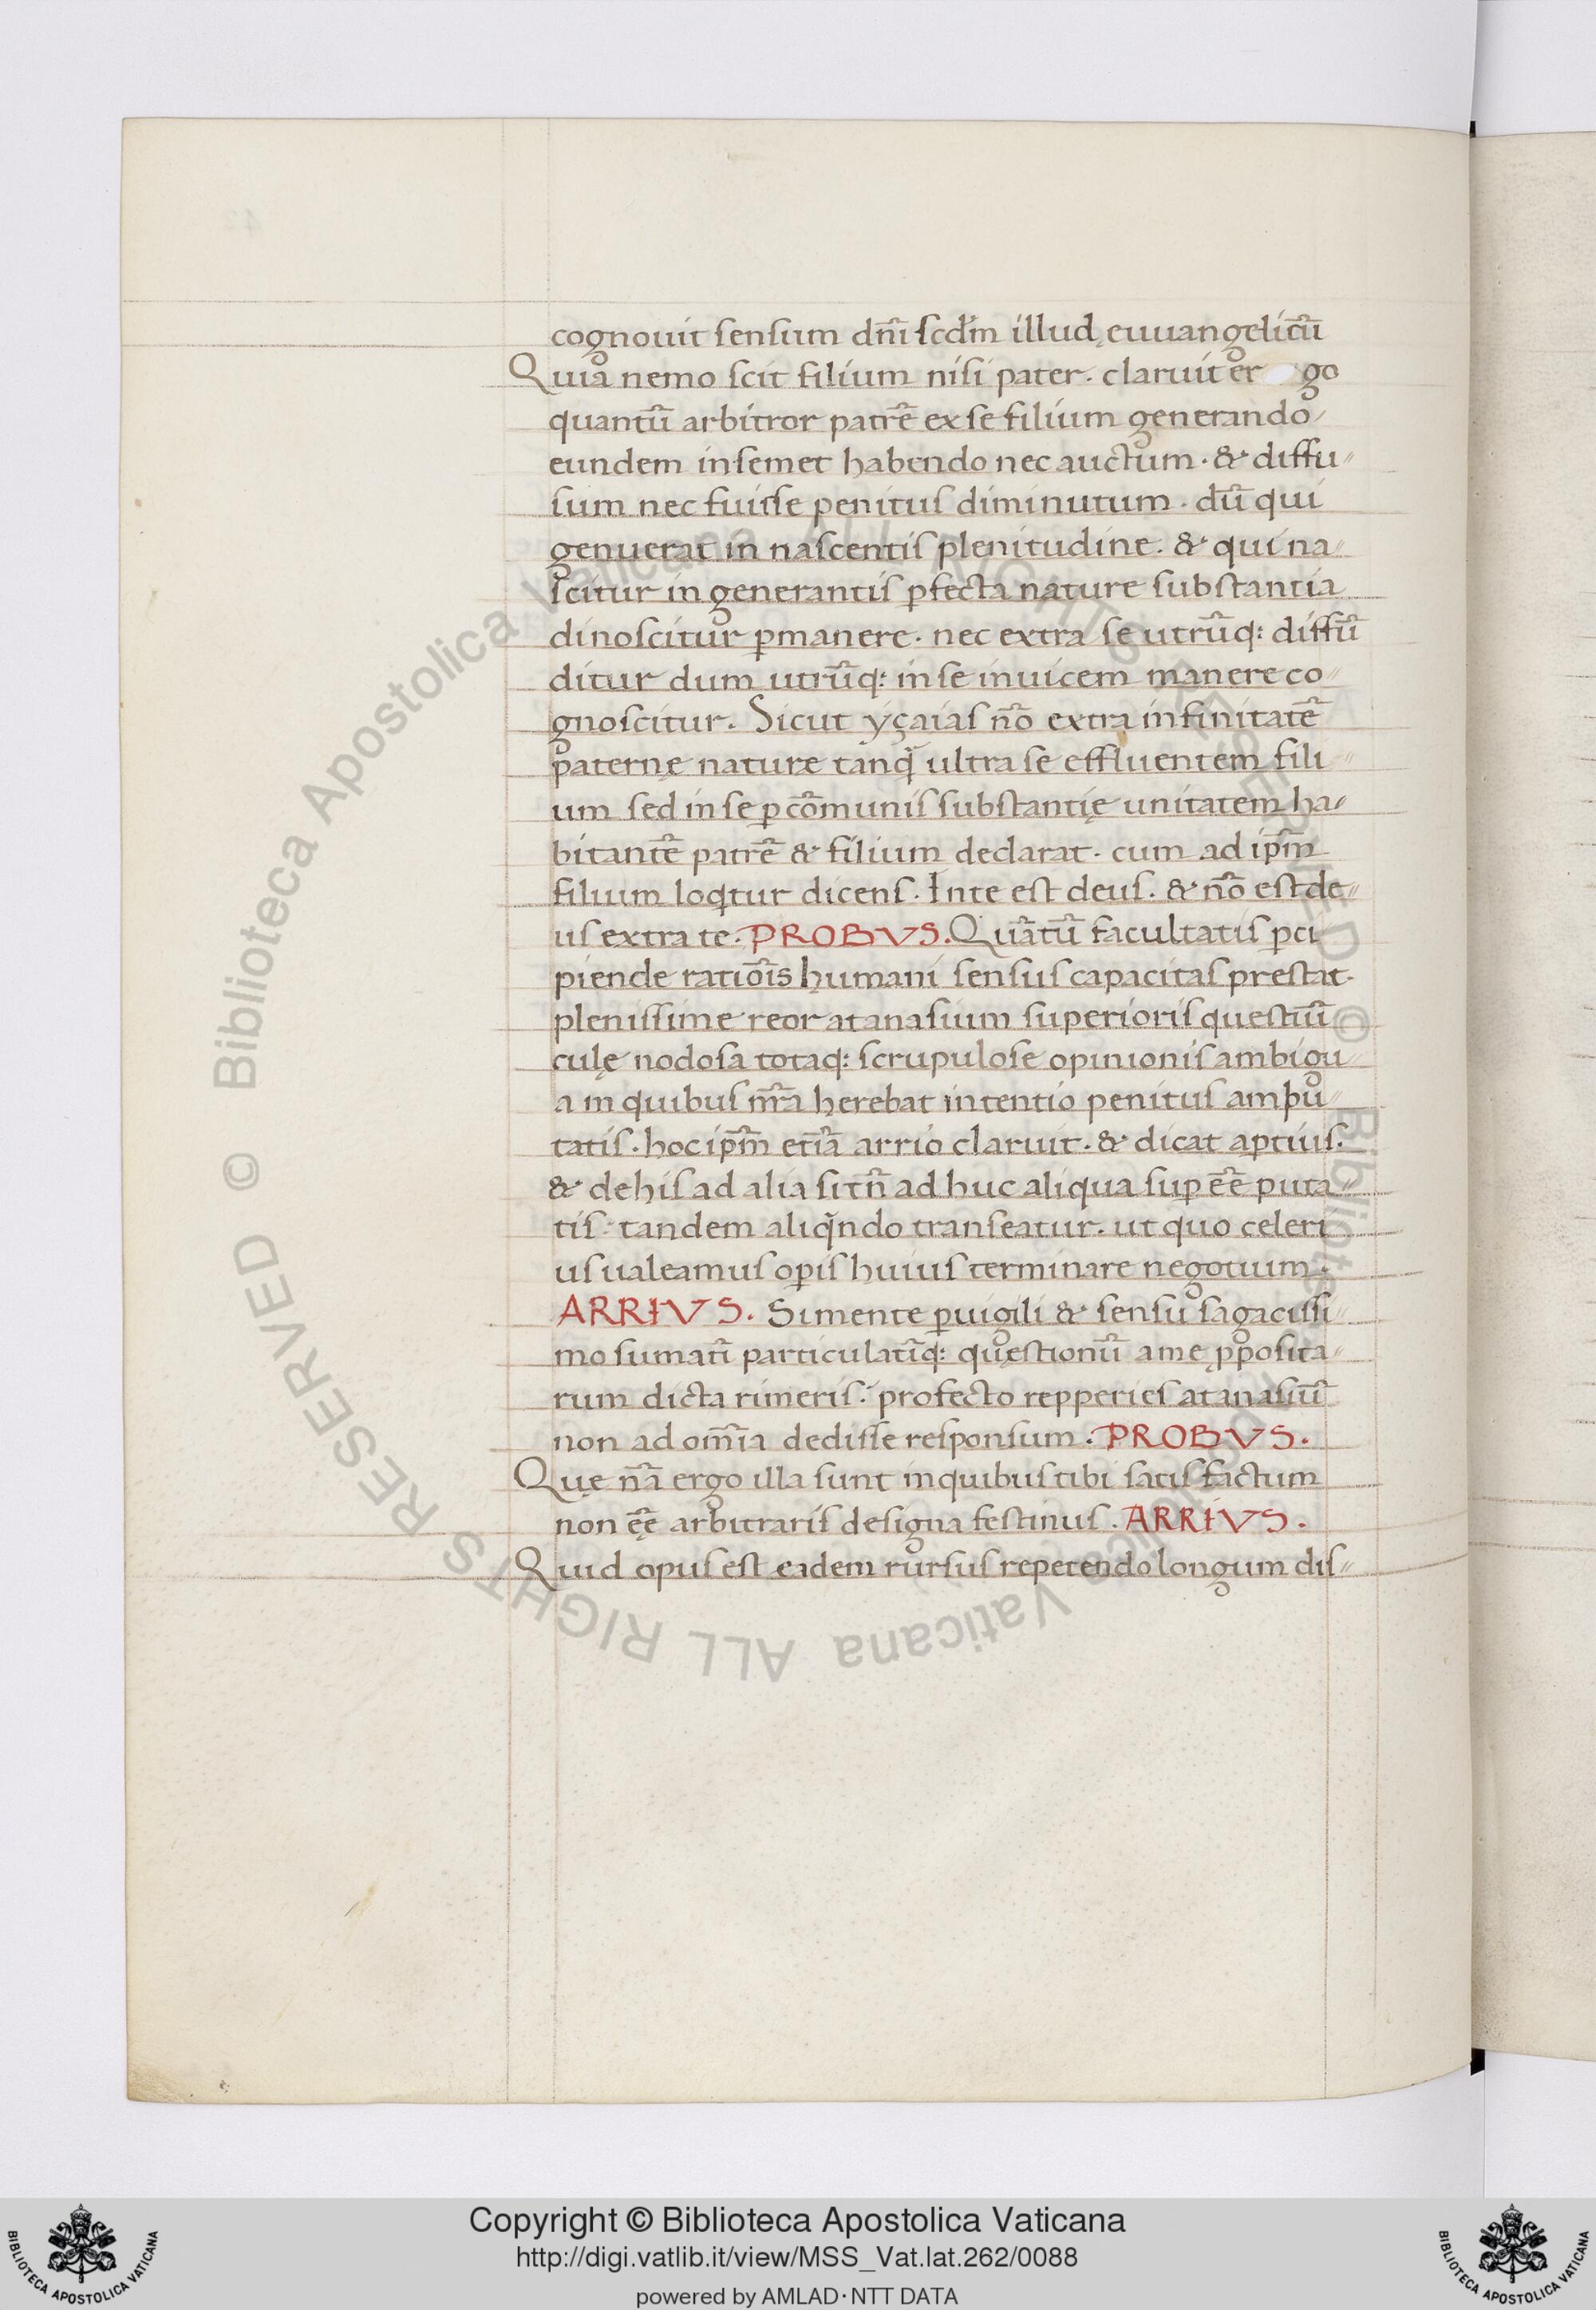 cognouit sensum dn̄i scd̄m illud ęuuangelicū
Quia nemo scit filium nisi pater. claruit er go
quantū arbitror patrē ex se filium generando
eundem in semet habendo nec auctum. & diffu
sum nec fuisse penitus diminutum. dū qui
genuerat in nascentis plenitudine. & qui na
scitur in generantis ꝑfecta nature substantia
dinoscitur ꝑmanere. nec extra se utrūq: diffū
ditur dum utrūq: in se inuicem manere co
gnoscitur. Sicut yçaias nō extra infinitatē
paternę nature tanq̄ ultra se effluentem fili
um sed in se ꝑ cōmunis substantię unitatem ha
bitantē patrē & filium declarat. cum ad ip̄m
filium loqͥtur dicens. In te est deus. & nō est de
us extra te. PROBVS. Quātū facultatis ꝑci
piende ratiōis humani sensus capacitas prestat.
plenissime reor atanasium superioris questiū
culę nodosa totaq: scrupulose opinionis ambigu
a in quibus nr̄a herebat intentio penitus ampu
tatis. hoc ip̄m etiā arrio claruit. & dicat aptius.
& de his ad alia si tn̄ ad huc aliqua sup ēe puta
tis. tandem aliqn̄do transeatur. ut quo celeri
us ualeamus oꝑis huius terminare negotium.
ARRIVS. Si mente ꝑuigili & sensu sagacissi
mo sumatī particulatīq: quęstionū a me ꝓposita
rum dicta rimeris. profecto repperies atanasiū
non ad om̄ia dedisse responsum. PROBVS.
Quę nā ergo illa sunt in quibus tibi satis factum
non ęē arbitraris designa festinus. ARRIVS.
Quid opus est eadem rursus repetendo longum dis
© Biblioteca Apostolica Vaticana ALL RIGHTS RESERVED
Copyright © Biblioteca Apostolica Vaticana
http://digi.vatlib.it/view/MSS_Vat.lat.262/0088
powered by AMLAD·NTT DATA
BIBLIOTECA APOSTOLICA VATICANA
BIBLIOTECA APOSTOLICA VATICANA